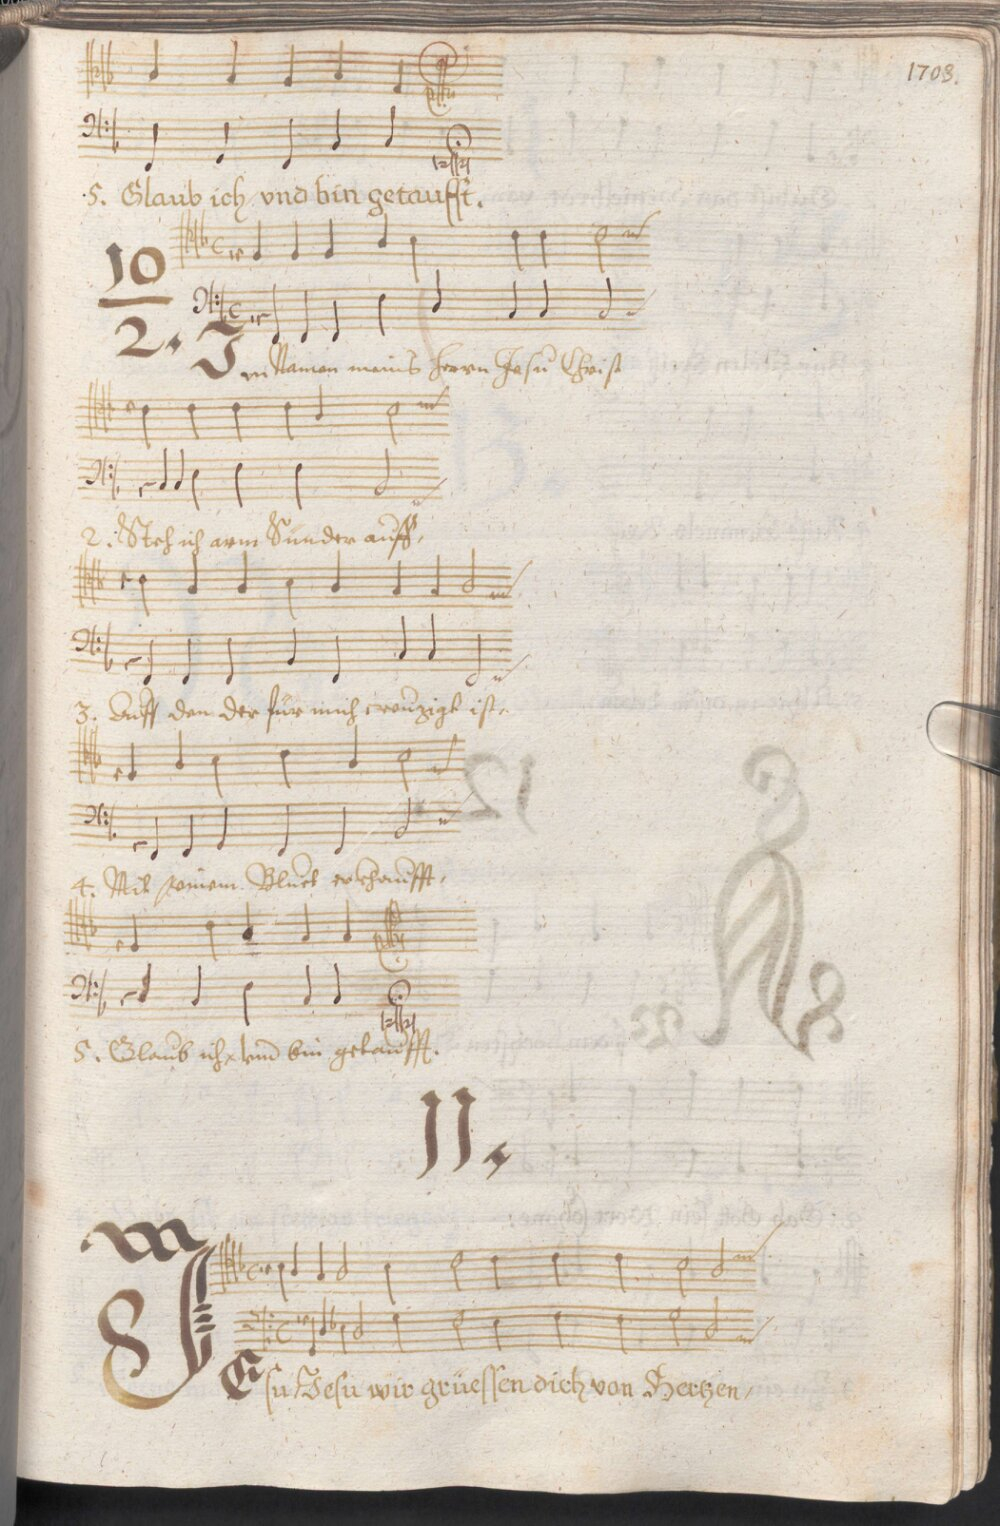 1703.
5. Glaub ich vnd bin getaufft.
10
2.
Im Namen meins Herrn Jesu Christ
2. Steh ich arm Sünder auff,
3. Auff den der für mich creuzigt ist,
4. Mit seinem Bluet erkhaufft,
5. Glaub ich, vnd bin getaufft.
11.
JEsu, Jesu wir grüessen dich von Hertzen,